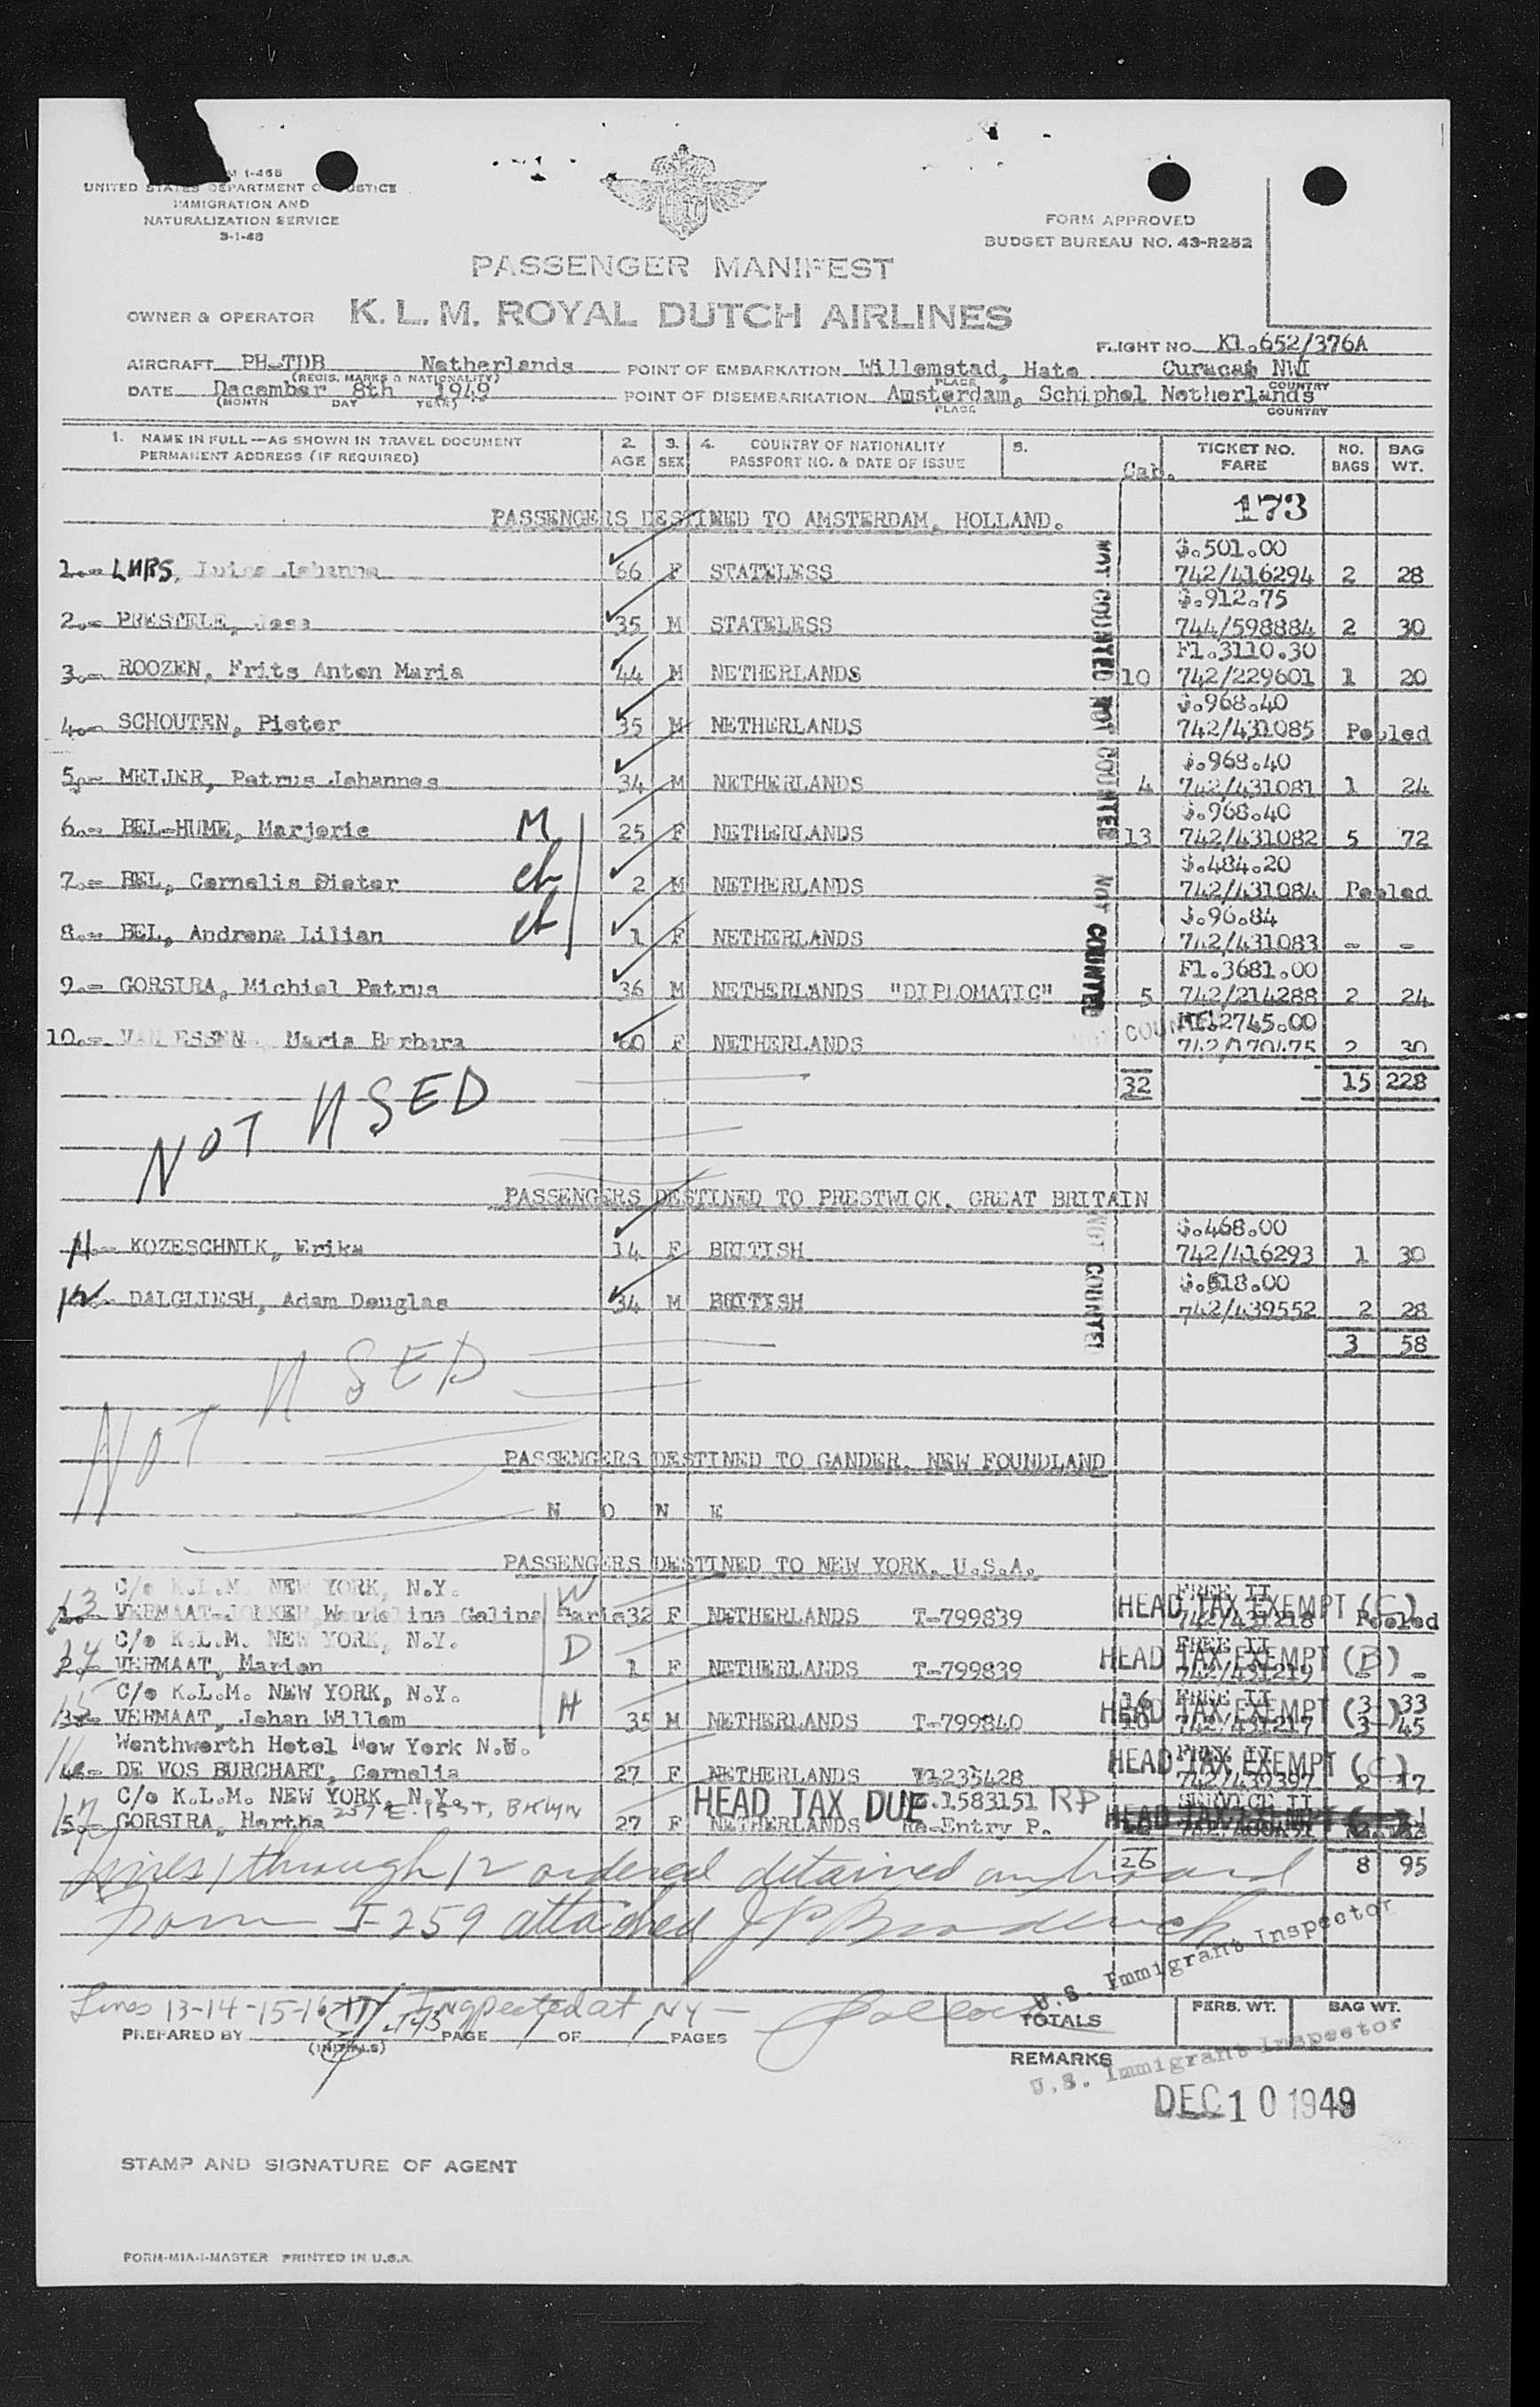 M I-466
UNITED STATES DEPARTMENT OF JUSTICE
IMMIGRATION AND
NATURALIZATION SERVICE
3-1-48
FORM APPROVED
BUDGET BUREAU NO. 43-R252
PASSENGER MANIFEST
OWNER & OPERATOR K. L. M. ROYAL DUTCH AIRLINES
FLIGHT NO. Kl.652/376A
AIRCRAFT PH-TDB Netherlands POINT OF EMBARKATION Willemstad, Hato Curacao NWI
(REGIS. MARKS & NATIONALITY) PLACE COUNTRY
DATE December 8th 1949 POINT OF DISEMBARKATION Amsterdam, Schiphol Netherlands
(MONTH DAY YEAR) PLACE COUNTRY
1. NAME IN FULL—AS SHOWN IN TRAVEL DOCUMENT 2. 3. 4. COUNTRY OF NATIONALITY 5. TICKET NO. NO. BAG
PERMANENT ADDRESS (IF REQUIRED) AGE SEX PASSPORT NO. & DATE OF ISSUE Cab. FARE BAGS WT.
173
PASSENGERS DESTINED TO AMSTERDAM, HOLLAND.
$.501.00
1.- LUHRS, Luise Johanna 66 F STATELESS 742/416294 2 28
$.912.75
2.- PRESTELE, Jose 35 M STATELESS 744/598884 2 30
Fl.3110.30
3.- ROOZEN, Frits Anton Maria 44 M NETHERLANDS 10 742/229601 1 20
$.968.40
4.- SCHOUTEN, Pieter 35 M NETHERLANDS 742/431085 Pooled
$.968.40
5.- MEIJER, Petrus Johannes 34 M NETHERLANDS 4 742/431081 1 24
$.968.40
6.- BEL-HUME, Marjorie M 25 F NETHERLANDS 13 742/431082 5 72
$.484.20
7.- BEL, Cornelis Dieter ch 2 M NETHERLANDS 742/431084 Pooled
$.96.84
8.- BEL, Andrena Lilian ch 1 F NETHERLANDS 742/431083 - -
Fl.3681.00
9.- GORSIRA, Michiel Petrus 36 M NETHERLANDS "DIPLOMATIC" 5 742/214288 2 24
2745.00
10.- VAN ESSEN, Maria Barbara 60 F NETHERLANDS 742/170475 2 30
NOT COUNTED NOT COUNTED
NOT COUNTED
NOT COUNTED
32 15 228
NOT USED
PASSENGERS DESTINED TO PRESTWICK, GREAT BRITAIN
$.468.00
11.- KOZESCHNIK, Erika 14 F BRITISH 742/416293 1 30
$.518.00
12.- DALGLIESH, Adam Douglas 34 M BRITISH 742/439552 2 28
NOT COUNTED
3 58
NOT USED
PASSENGERS DESTINED TO GANDER, NEW FOUNDLAND
N O N E
PASSENGERS DESTINED TO NEW YORK, U.S.A.
C/o K.L.M. NEW YORK, N.Y. W FREE II
13 VERMAAT-JONKER, Wendelina Galina Maria 32 F NETHERLANDS T-799839 HEAD TAX EXEMPT (C) 742/431218 Pooled
C/o K.L.M. NEW YORK, N.Y. D FREE II
14 VERMAAT, Marion 1 F NETHERLANDS T-799839 HEAD TAX EXEMPT (B) 742/431219 - -
C/o K.L.M. NEW YORK, N.Y. H 16 FREE II 3 33
15 VERMAAT, Johan Willem 35 M NETHERLANDS T-799840 HEAD TAX EXEMPT 10 742/431217 3 45
Wenthworth Hotel New York N.Y. FREE II
16 DE VOS BURCHART, Cornelia 27 F NETHERLANDS V1235428 HEAD TAX EXEMPT (C) 742/439397 2 17
C/o K.L.M. NEW YORK, N.Y. 257 E. 15 ST, BKLYN HEAD TAX DUE 1583151 RP SERVICE II
17 GORSIRA, Hertha 27 F NETHERLANDS Re-Entry P. HEAD TAX EXEMPT
26 8 95
Lines 1 through 12 ordered detained on board
Form I-259 attached J P Broderick
U.S. Immigrant Inspector
Lines 13-14-15-16-17 Inspected at NY —
PREPARED BY (INITIALS) PAGE 1 OF 1 PAGES TOTALS PERS. WT. BAG WT.
REMARKS
U.S. Immigrant Inspector
DEC 10 1949
STAMP AND SIGNATURE OF AGENT
FORM-MIA-I-MASTER PRINTED IN U.S.A.